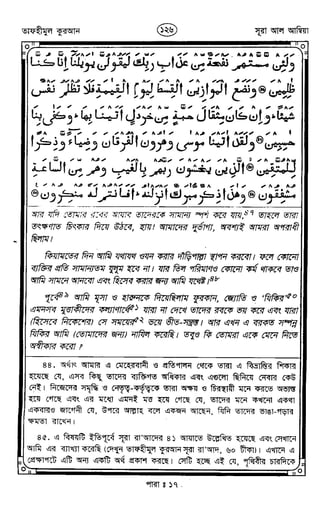 তাফহীমুল কুরআন ১২৬ সূরা আল আম্বিয়া
وَلَئِنْ مَّسَّتْهُمْ نَفْحَةٌ مِّنْ عَذَابِ رَبِّكَ لَيَقُولُنَّ يٰوَيْلَنَآ اِنَّا كُنَّا
ظٰلِمِيْنَ ۞ وَنَضَعُ الْمَوَازِيْنَ الْقِسْطَ لِيَوْمِ الْقِيٰمَةِ فَلَا تُظْلَمُ نَفْسٌ
شَيْـًٔا ۗ وَاِنْ كَانَ مِثْقَالَ حَبَّةٍ مِّنْ خَرْدَلٍ اَتَيْنَا بِهَا ۗ وَكَفٰى بِنَا
حٰسِبِيْنَ ۞ وَلَقَدْ اٰتَيْنَا مُوْسٰى وَهٰرُوْنَ الْفُرْقَانَ وَضِيَآءً وَّذِكْرًا
لِّلْمُتَّقِيْنَ ۞ الَّذِيْنَ يَخْشَوْنَ رَبَّهُمْ بِالْغَيْبِ وَهُمْ مِّنَ السَّاعَةِ
مُشْفِقُوْنَ ۞ وَهٰذَا ذِكْرٌ مُّبٰرَكٌ اَنْزَلْنٰهُ ۗ اَفَاَنْتُمْ لَهٗ مُنْكِرُوْنَ ۞
আর যদি তোমার রবের আযাব তাদেরকে সামান্য স্পর্শ করে যায়,৪৭ তাহলে তারা
তৎক্ষণাত চিৎকার দিয়ে উঠবে, হায়! আমাদের দুর্ভাগ্য, অবশ্যই আমরা অপরাধী
ছিলাম।
কিয়ামতের দিন আমি যথাযথ ওজন করার দাঁড়িপাল্লা স্থাপন করবো। ফলে কোনো
ব্যক্তির প্রতি সামান্যতম যুলুম হবে না। যার তিল পরিমাণও কোনো কর্ম থাকবে তাও
আমি সামনে আনবো এবং হিসেব করার জন্য আমি যথেষ্ট।৪৮
পূর্বে৪৯ আমি মূসা ও হারুনকে দিয়েছিলাম ফুরকান, জ্যোতি ও 'যিকির'৫০
এমনসব মুত্তাকীদের কল্যাণার্থে৫১ যারা না দেখে তাদের রবকে ভয় করে এবং যারা
(হিসেবে নিকেশের) সে সময়ের৫২ ভয়ে ভীত-সন্ত্রস্ত। আর এখন এ বরকত সম্পন্ন
যিকির আমি (তোমাদের জন্য) নাযিল করেছি। তবুও কি তোমরা একে মেনে নিতে
অস্বীকার করো ?
৪৪. অর্থাৎ আমার এ মেহেরবানী ও প্রতিপালন থেকে তারা এ বিভ্রান্তির শিকার
হয়েছে যে, এসব কিছু তাদের ব্যক্তিগত অধিকার এবং এগুলো ছিনিয়ে নেবার কেউ
নেই। নিজেদের সমৃদ্ধি ও নেতৃত্ব-কর্তৃত্বকে তারা অক্ষয় ও চিরস্থায়ী মনে করতে অভ্যস্ত
হয়ে গেছে এবং এর মধ্যে এমনই মত্ত হয়ে গেছে যে, তাদের মনে কখনো একথা
একবারও জাগেনি যে, উপরে আল্লাহ বলে একজন আছেন, যিনি তাদের ভাঙা-গড়ার
ক্ষমতা রাখেন।
৪৫. এ বিষয়টি ইতিপূর্বে সূরা রা'আদের ৪১ আয়াতে উল্লেখিত হয়েছে এবং সেখানে
আমি এর ব্যাখ্যা করেছি (দেখুন তাফহীমুল কুরআন সূরা রা'আদ, ৬০ টীকা)। এখানে এ
প্রেক্ষাপটে এটি অন্য একটি অর্থ প্রকাশ করছে। সেটি হচ্ছে এই যে, পৃথিবীর চারদিকে
পারা : ১৭